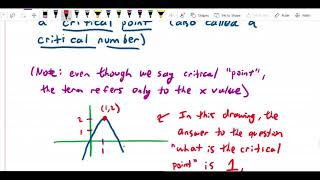 a critical point (also called a
critical number)
(Note: even though we say critical "point",
the term refers only to the x value)
(1,2)
2
1
1
In this drawing, the
answer to the question
"what is the critical
point" is 1,